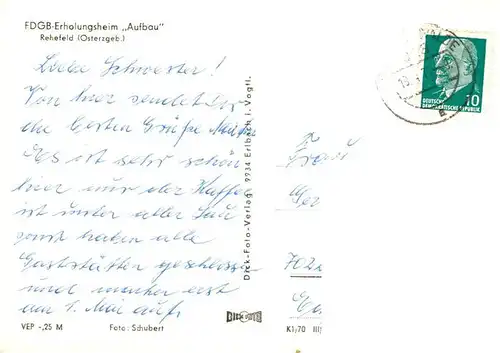 FDGB-Erholungsheim „Aufbau“
Rehefeld (Osterzgeb.)
Liebe Schwester!
Von hier sendet Dir
die besten Grüße
Es ist sehr schön
hier nur der Kaffee
ist unter aller Sau
sonst haben alle
Gaststätten geschlossen
und machen erst
am 1. Mai auf.
VEP -,25 M
Foto: Schubert
Dick-Foto-Verlag, 9934 Erlbach i. Vogtl.
DICK FOTO
K1/70 III/
10
DEUTSCHE
DEMOKRATISCHE REPUBLIK
Frau
702